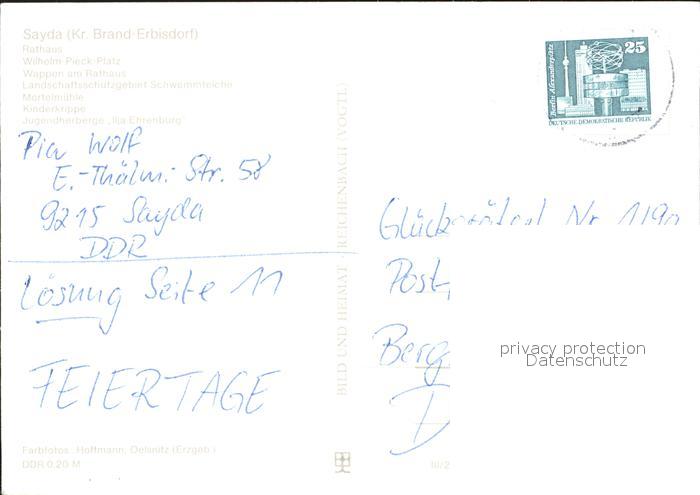 Sayda (Kr. Brand-Erbisdorf)
Rathaus
Wilhelm-Pieck-Platz
Wappen am Rathaus
Landschaftsschutzgebiet Schwemmteiche
Mörtelmühle
Kinderkrippe
Jugendherberge „Ilja Ehrenburg"
Pia Wolf
E.-Thälm.-Str. 58
9215 Sayda
DDR
Lösung Seite 11
FEIERTAGE
Farbfotos: Hoffmann, Oelsnitz (Erzgeb.)
DDR 0,20 M
BILD UND HEIMAT · REICHENBACH (VOGTL)
25
Berlin, Alexanderplatz
DEUTSCHE DEMOKRATISCHE REPUBLIK
Glücksrätsel Nr. 1/90
Post
Berg
D
III/2
privacy protection
Datenschutz